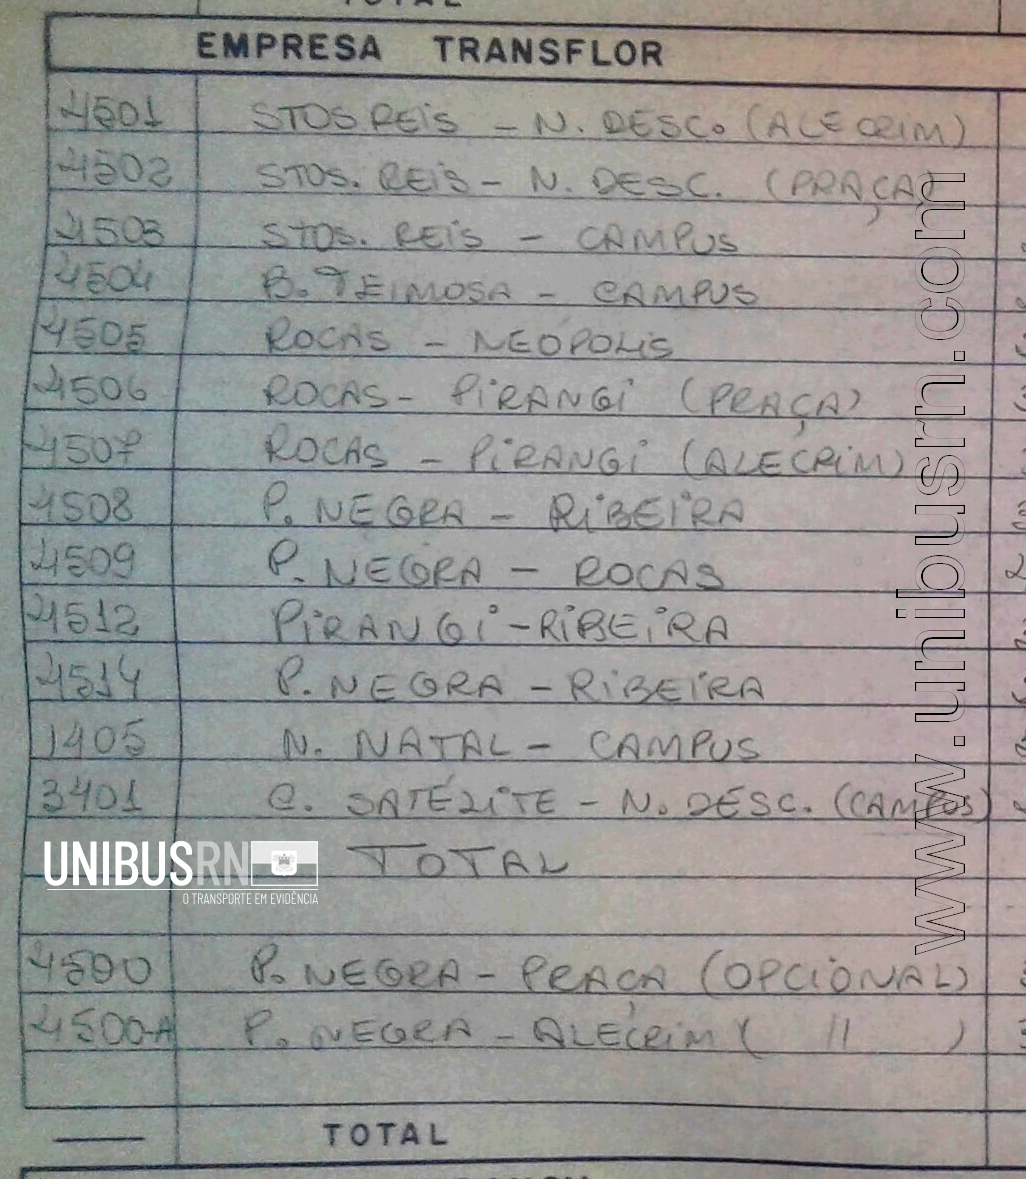 TOTAL
EMPRESA TRANSFLOR
4501 STOS REIS - N. DESC. (ALECRIM)
4502 STOS. REIS - N. DESC. (PRAÇA)
4503 STOS. REIS - CAMPUS
4504 B. TEIMOSA - CAMPUS
4505 ROCAS - NEOPOLIS
4506 ROCAS - PIRANGI (PRAÇA)
4507 ROCAS - PIRANGI (ALECRIM)
4508 P. NEGRA - RIBEIRA
4509 P. NEGRA - ROCAS
4512 PIRANGI - RIBEIRA
4514 P. NEGRA - RIBEIRA
1405 N. NATAL - CAMPUS
3401 C. SATÉLITE - N. DESC. (CAMPUS)
TOTAL
UNIBUSRN
O TRANSPORTE EM EVIDÊNCIA
4500 P. NEGRA - PRAÇA (OPCIONAL)
4500-A P. NEGRA - ALECRIM ( 11 )
— TOTAL
www.unibusrn.com